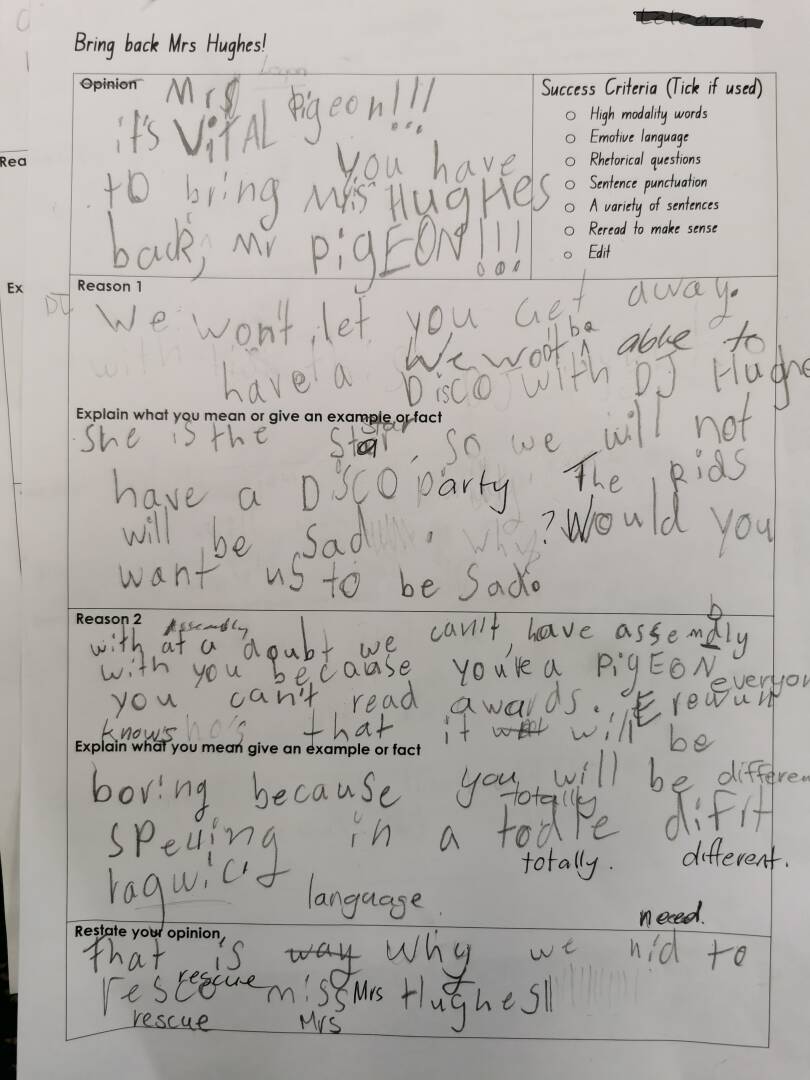 Bring back Mrs Hughes!
Opinion
Mrs Pigeon!!!
it's ViTAL
you have
to bring Mrs HUGHES
back, Mr PiGEON!!!
Success Criteria (Tick if used)
High modality words
Emotive language
Rhetorical questions
Sentence punctuation
A variety of sentences
Reread to make sense
Edit
Rea
Ex
Reason 1
DJ
We won't let you Get away.
We woot be abke to
have a DisCO with DJ Hughe
Explain what you mean or give an example or fact
star
She is the Star, so we will not
have a DiSCO party The kids
will be Sad. why? Would you
want us to be Sad.
Reason 2
Assembly
b
with at a doubt we can't, have assemdly
with you because you're a PiGEON
everyon
you can't read awards. Erewun
knows that it will be
Explain what you mean give an example or fact
boring because you will be differen
totally
spelling in a todle difit
totally. different.
lagwict
language
Restate your opinion,
need.
that is way why we nid to
rescue
resco miss Mrs Hughes!!
rescue Mrs